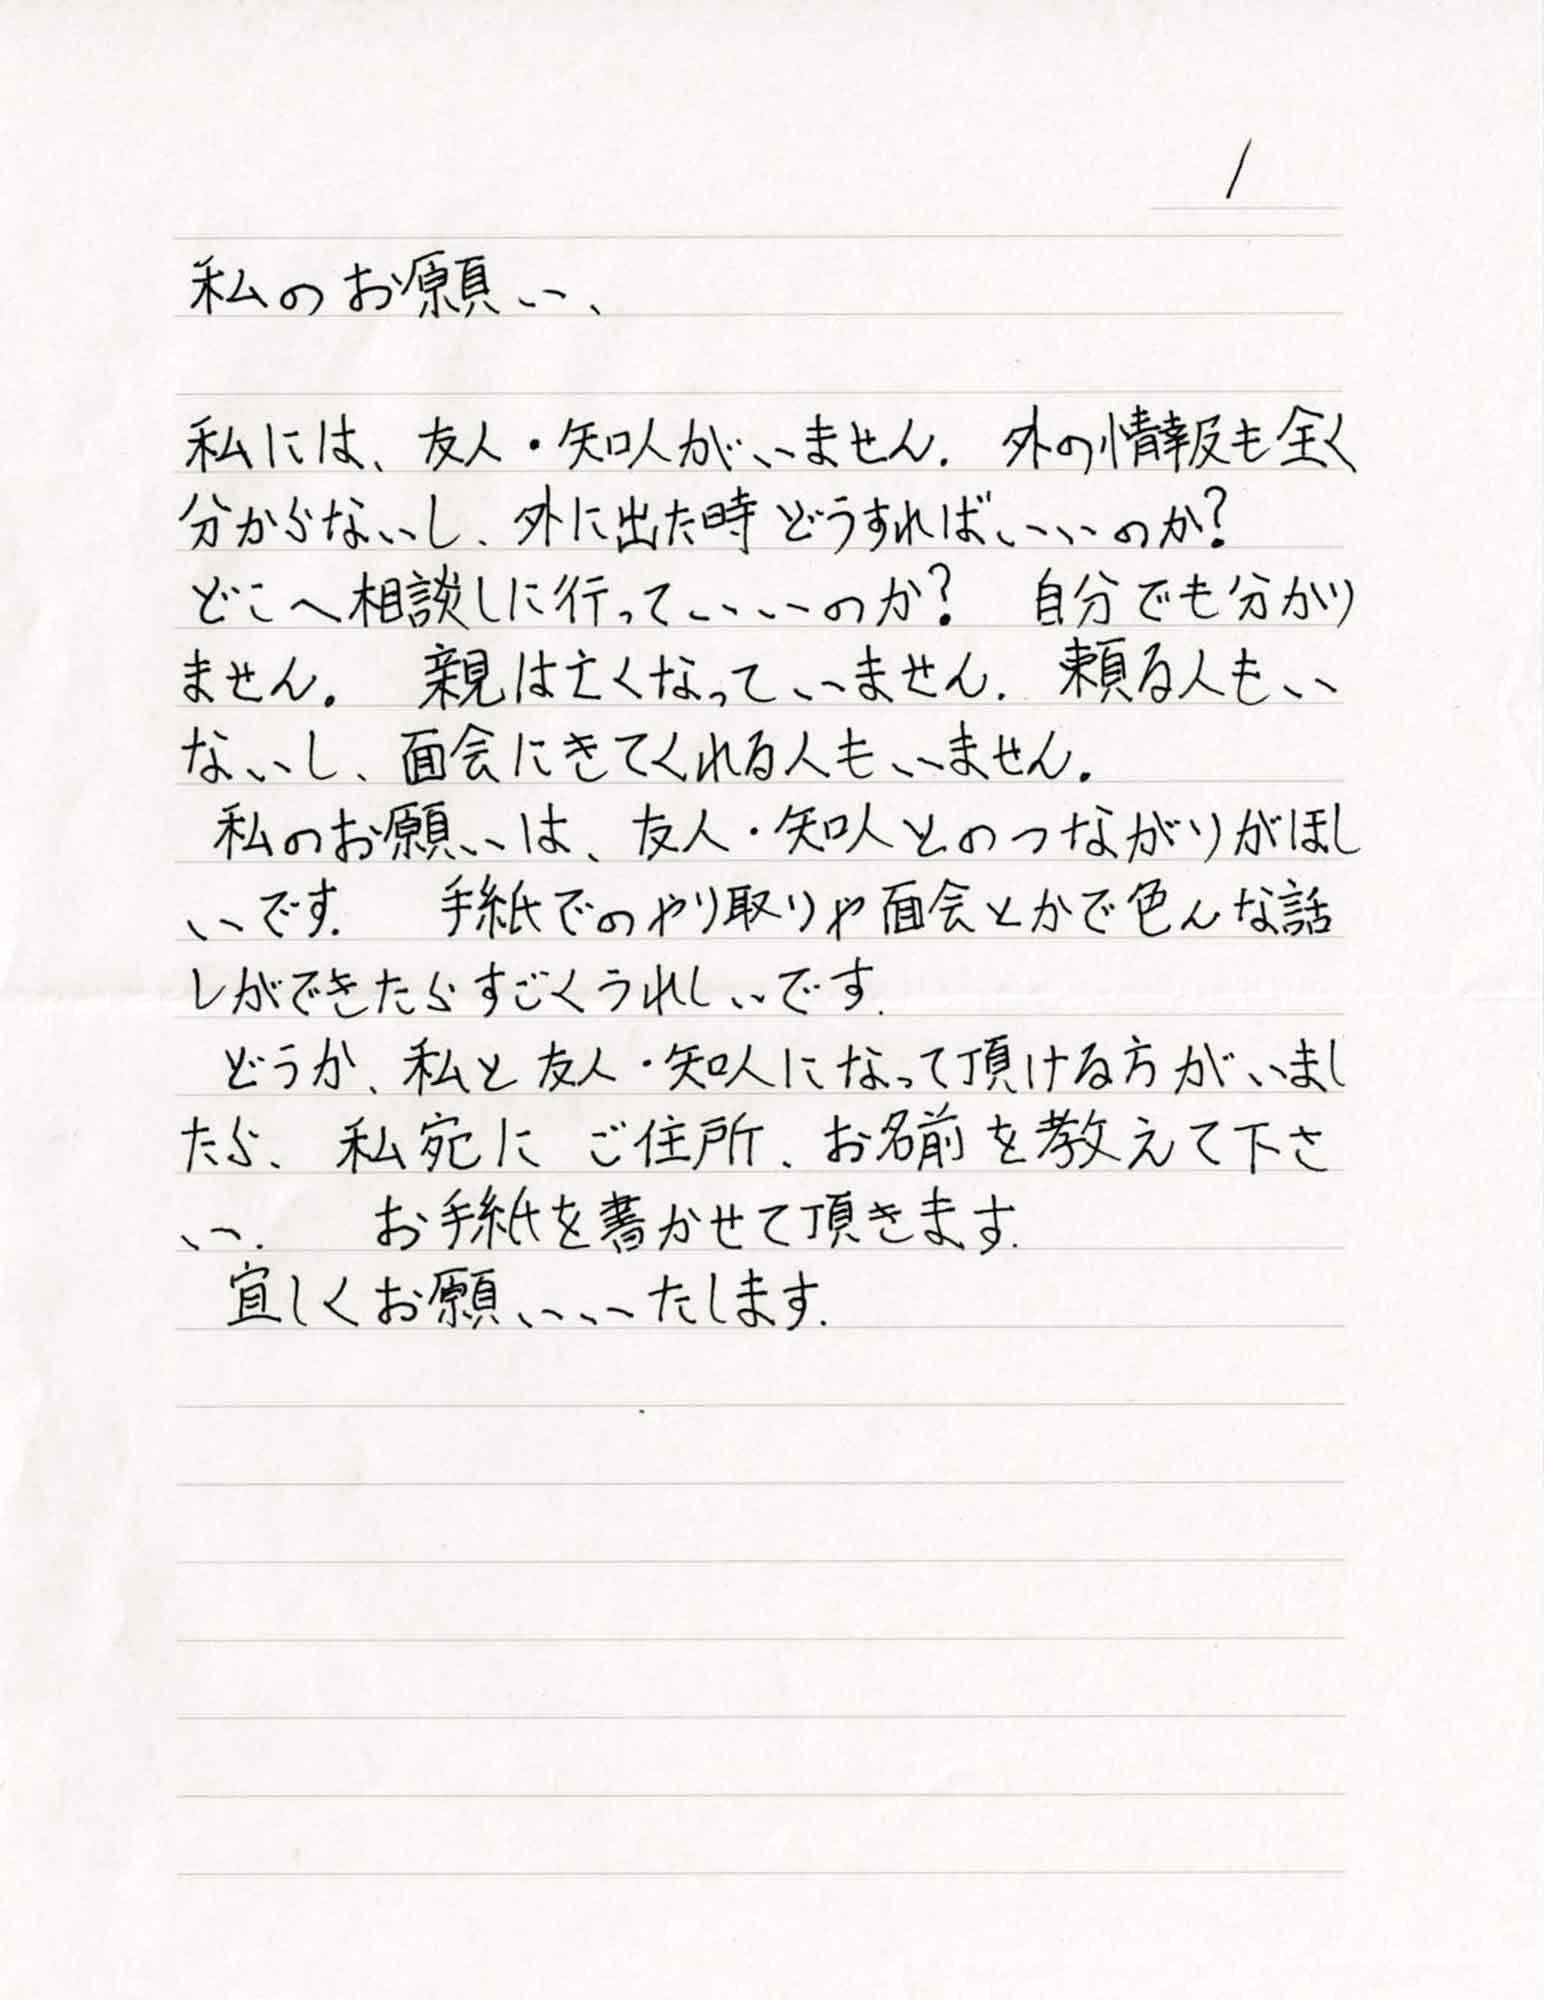 1
私のお願い、
私には、友人・知人がいません. 外の情報も全く
分からないし、外に出た時どうすればいいのか?
どこへ相談しに行っていいのか? 自分でも分かり
ません。 親は亡くなっていません. 頼る人もい
ないし、面会にきてくれる人もいません.
私のお願いは、友人・知人とのつながりがほし
いです. 手紙でのやり取りや面会とかで色んな話
しができたらすごくうれしいです.
どうか、私と友人・知人になって頂ける方がいまし
たら、私宛に ご住所、お名前を教えて下さ
い. お手紙を書かせて頂きます.
宜しくお願いいたします.